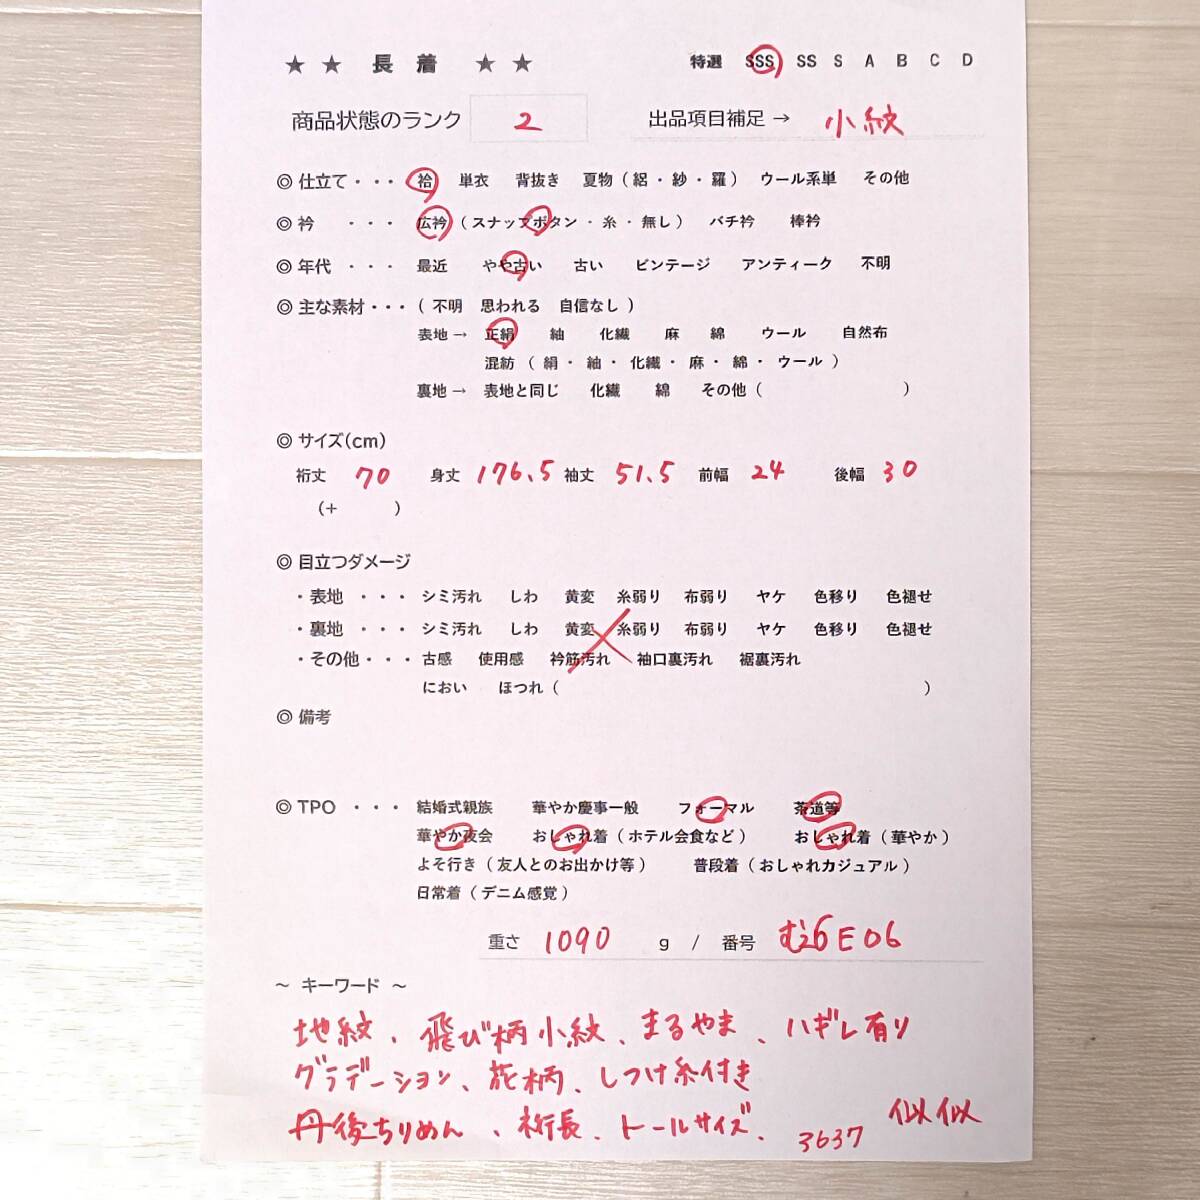 ★ ★ 長 着 ★ ★ 特選 SSS SS S A B C D
商品状態のランク 2 出品項目補足 → 小紋
◎ 仕立て ・・・ 袷 単衣 背抜き 夏物 ( 絽 ・ 紗 ・ 羅 ) ウール系単 その他
◎ 衿 ・・・ 広衿 ( スナップボタン ・ 糸 ・ 無し ) バチ衿 棒衿
◎ 年代 ・・・ 最近 やや古い 古い ビンテージ アンティーク 不明
◎ 主な素材・・・ ( 不明 思われる 自信なし )
表地 → 正絹 紬 化繊 麻 綿 ウール 自然布
混紡 ( 絹 ・ 紬 ・ 化繊 ・ 麻 ・ 綿 ・ ウール )
裏地 → 表地と同じ 化繊 綿 その他 ( )
◎ サイズ(cm)
裄丈 70 身丈 176.5 袖丈 51.5 前幅 24 後幅 30
(+ )
◎ 目立つダメージ
・表地 ・・・ シミ汚れ しわ 黄変 糸弱り 布弱り ヤケ 色移り 色褪せ
・裏地 ・・・ シミ汚れ しわ 黄変 糸弱り 布弱り ヤケ 色移り 色褪せ
・その他・・・ 古感 使用感 衿筋汚れ 袖口裏汚れ 裾裏汚れ
におい ほつれ ( )
◎ 備考
◎ TPO ・・・ 結婚式親族 華やか慶事一般 フォーマル 茶道等
華やか夜会 おしゃれ着 ( ホテル会食など ) おしゃれ着 ( 華やか )
よそ行き ( 友人とのお出かけ等 ) 普段着 ( おしゃれカジュアル )
日常着 ( デニム感覚 )
重さ 1090 g / 番号 E06
～ キーワード ～
地紋、飛び柄小紋、まるやま、ハギレ有り
グラデーション、花柄、しつけ糸付き
丹後ちりめん、裄長、トールサイズ、 3637 似似